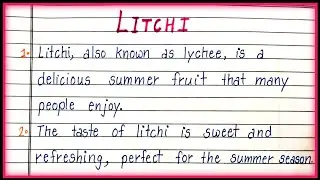 LITCHI
1. Litchi, also known as lychee, is a
delicious summer fruit that many
people enjoy.
2. The taste of litchi is sweet and
refreshing, perfect for the summer season.